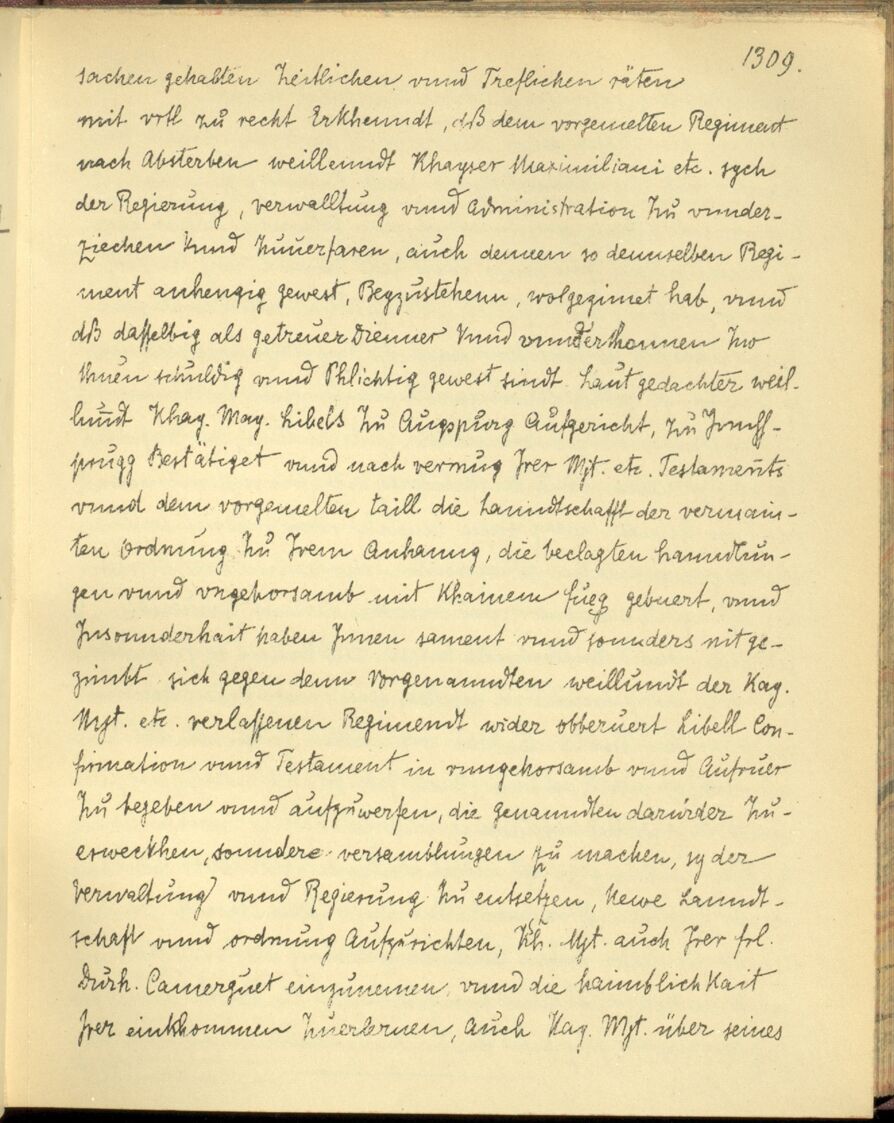 1309.
sachen gehabten Zeitlichen vnnd Treflichen räten
mit vrtl zu recht Erkhenndt, dß dem vorgemelten Regiment
nach Absterben weillenndt Khayser Maximiliani etc. sych
der Regierung, verwalltung vnnd Administration Zu vnnder-
ziechen Vnnd Zuuerfaren, auch dennen so demselben Regi-
ment anhengig gewest, Beyzustehenn, wolgezimet hab, vnnd
dß dasselbig als getreuer Dienner Vnnd vnnderthonnen Zuo
thuen schuldig vnnd Phlichtig gewest sindt Laut gedachter weil-
lundt Khay. May. Libels Zu Augspurg Aufgericht, Zu Jnnss-
prugg Bestätiget vnnd nach vermug Jrer Mjt. etc. Testaments
vnnd dem vorgemelten taill die lanndtschafft der vermain-
ten Ordnung Zu Jrem Anhanng, die beclagten hanndlun-
gen vnnd vngehorsamb mit Khainem fueg gebuert, vnnd
Jnsonnderhait haben Jnnen sament vnnd sonnders nit ge-
zimbt sich gegen denn Vorgenanndten weillundt der Kay.
Mjt. etc. verlassenen Regimendt wider obberuert Libell Con-
firmation vnnd Testament in vnngehorsamb vnnd Aufruer
Zu begeben vnnd aufzuwerfen, die genanndten darwider Zu-
erweckhen, sonndere versamblungen zu machen, sy der
Verwaltung vnnd Regierung Zu entsetzen, Newe Lanndt-
schaft vnnd ordnung Aufzurichten, Kh. Mjt. auch Jrer frl.
Durh. Camerguet einzunemen vnnd die haimblichkait
Jrer einkhommen Zuerlernen, auch Kay. Mjt. über seines